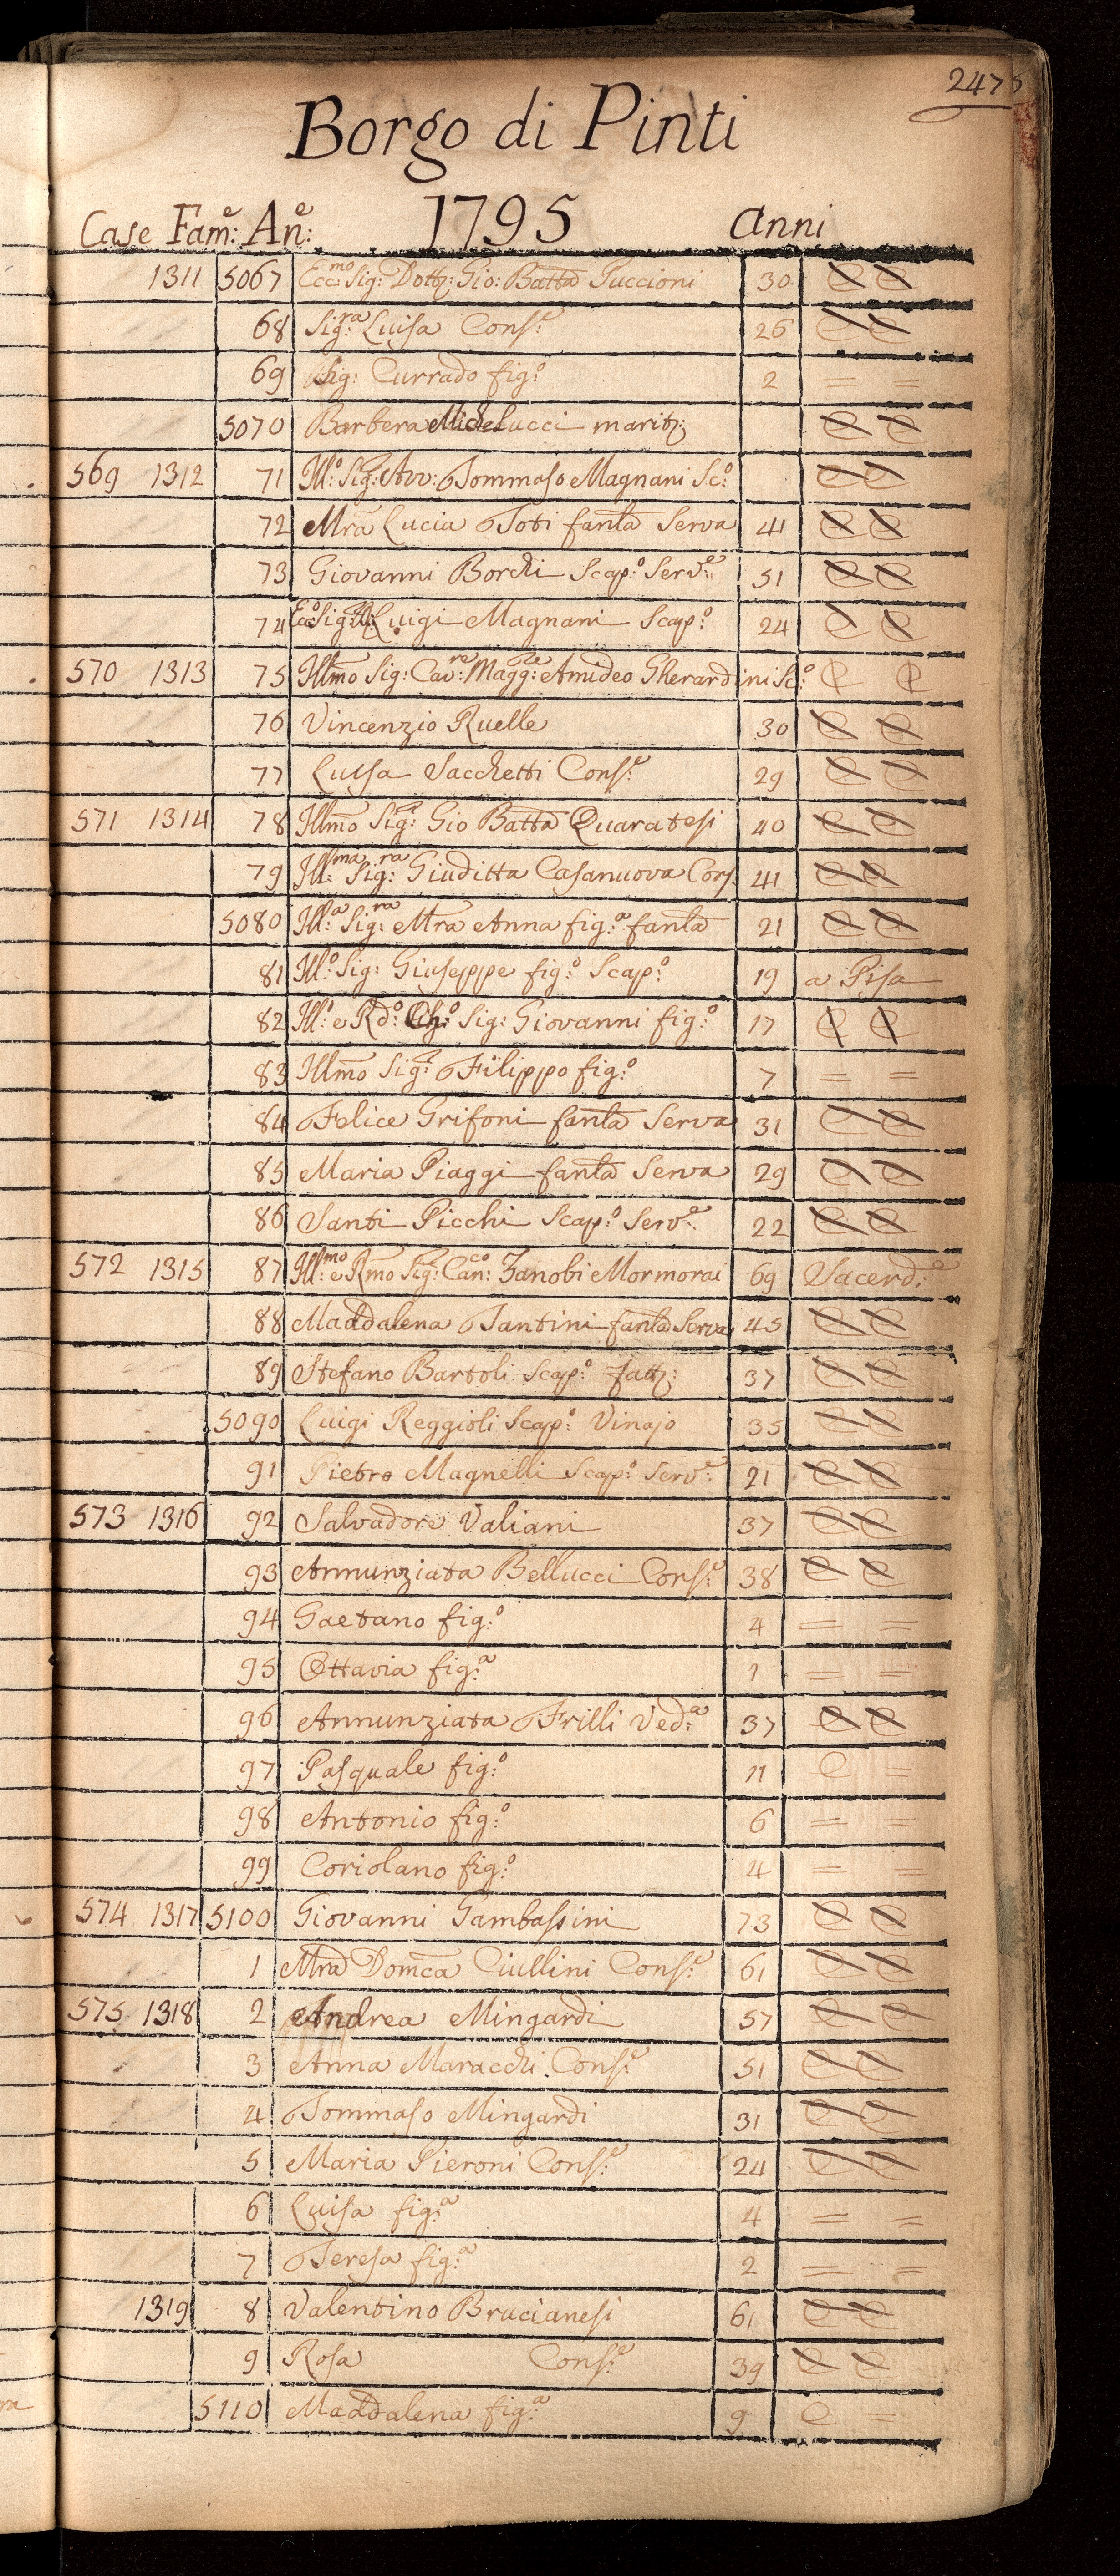 247
Borgo di Pinti
Case Fam:e An:e 1795 Anni
1311 5067 Ecc:mo Sig: Dott: Gio: Batta Guccioni 30 C C
68 Sig:ra Luisa Cons:e 26 C C
69 Sig: Currado fig:o 2 = =
5070 Barbera Michelucci marit: C C
569 1312 71 Ill:o Sig: Avv: Tommaso Magnani Sc:o C C
72 Mra Lucia Toti fanta Serva 41 C C
73 Giovanni Borchi Scap:o Serv:e 51 C C
74 Ecc:o Sig: Luigi Magnani Scap:o 24 C C
570 1313 75 Illmo Sig: Cav:re Magg:re Amideo Gherardini Sc:o C C
76 Vincenzio Ruelle 30 C C
77 Luisa Sacchetti Cons:e 29 C C
571 1314 78 Illmo Sig:r Gio Batta Quaratesi 40 C C
79 Ill:ma Sig:ra Giuditta Casanuova Cons: 41 C C
5080 Ill:a Sig:ra Mra Anna fig:a fanta 21 C C
81 Ill:o Sig: Giuseppe fig:o Scap:o 19 a Pisa
82 Ill:o e Rd:o Ch:o Sig: Giovanni fig:o 17 C C
83 Illmo Sig:r Filippo fig:o 7 = =
84 Felice Grifoni fanta Serva 31 C C
85 Maria Piaggi fanta Serva 29 C C
86 Santi Picchi Scap:o Serv:e 22 C C
572 1315 87 Ill:mo e Rmo Sig:r Can:co Zanobi Mormorai 69 Sacerd:e
88 Maddalena Tantini fanta Serva 45 C C
89 Stefano Bartoli Scap:o fatt: 37 C C
5090 Luigi Reggioli Scap:o Vinajo 35 C C
91 Pietro Magnelli Scap:o Serv:e 21 C C
573 1316 92 Salvadore Valiani 37 C C
93 Annunziata Bellucci Cons:e 38 C C
94 Gaetano fig:o 4 = =
95 Ottavia fig:a 1 = =
96 Annunziata Frilli Ved:a 37 C C
97 Pasquale fig:o 11 C =
98 Antonio fig:o 6 = =
99 Coriolano fig:o 4 = =
574 1317 5100 Giovanni Gambassini 73 C C
1 Mra Domca Ciullini Cons:e 61 C C
575 1318 2 Andrea Mingardi 57 C C
3 Anna Maracchi Cons:e 51 C C
4 Tommaso Mingardi 31 C C
5 Maria Pieroni Cons:e 24 C C
6 Luisa fig:a 4 = =
7 Teresa fig:a 2 = =
1319 8 Valentino Brucianesi 61 C C
9 Rosa Cons:e 39 C C
5110 Maddalena fig:a 9 C =